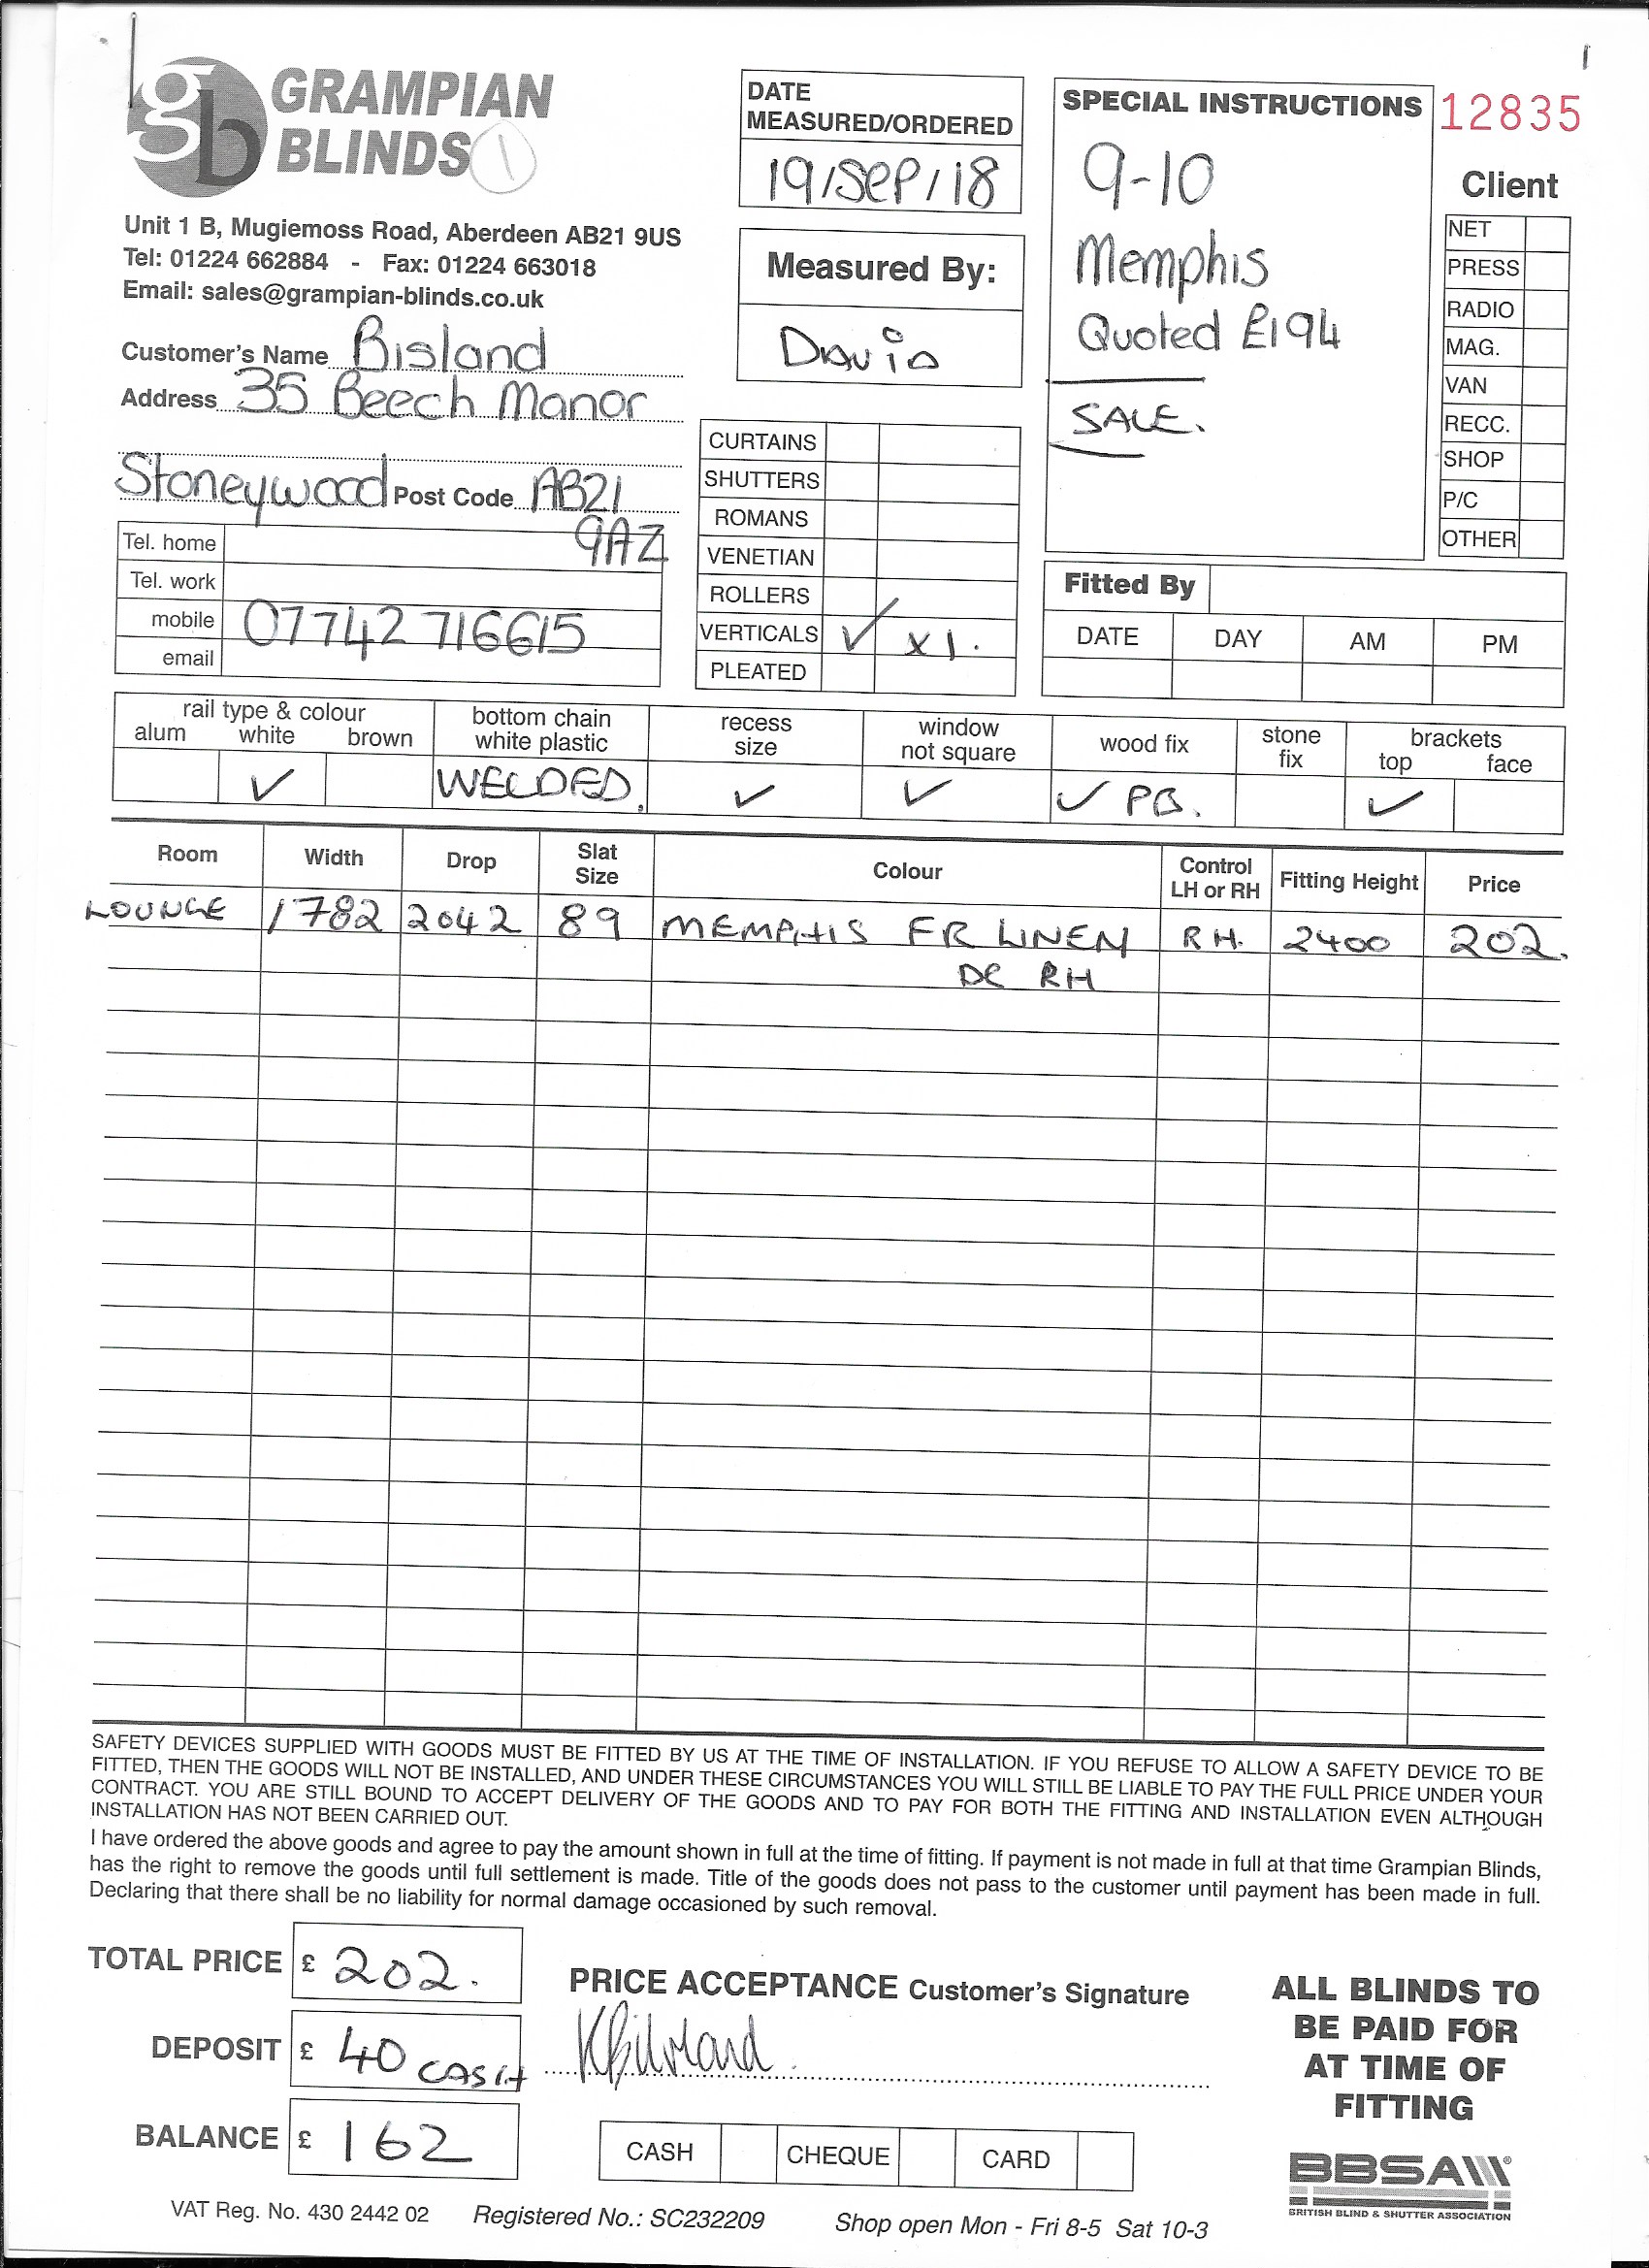 gb GRAMPIAN
BLINDS 1
Unit 1 B, Mugiemoss Road, Aberdeen AB21 9US
Tel: 01224 662884 - Fax: 01224 663018
Email: sales@grampian-blinds.co.uk
Customer's Name Bisland
Address 35 Beech Manor
Stoneywood Post Code AB21
9AZ
Tel. home
Tel. work
mobile 07742 716615
email
DATE
MEASURED/ORDERED
19/SEP/18
Measured By:
David
CURTAINS
SHUTTERS
ROMANS
VENETIAN
ROLLERS
VERTICALS ✓ x 1.
PLEATED
SPECIAL INSTRUCTIONS
9-10
Memphis
Quoted £194
SALE.
12835
Client
NET
PRESS
RADIO
MAG.
VAN
RECC.
SHOP
P/C
OTHER
Fitted By
DATE DAY AM PM
rail type & colour bottom chain recess window wood fix stone brackets
alum white brown white plastic size not square fix top face
✓ WELDED. ✓ ✓ ✓ PB. ✓
Room Width Drop Slat Size Colour Control LH or RH Fitting Height Price
LOUNGE 1782 2042 89 MEMPHIS FR LINEN RH. 2400 202.
DC RH
SAFETY DEVICES SUPPLIED WITH GOODS MUST BE FITTED BY US AT THE TIME OF INSTALLATION. IF YOU REFUSE TO ALLOW A SAFETY DEVICE TO BE
FITTED, THEN THE GOODS WILL NOT BE INSTALLED, AND UNDER THESE CIRCUMSTANCES YOU WILL STILL BE LIABLE TO PAY THE FULL PRICE UNDER YOUR
CONTRACT. YOU ARE STILL BOUND TO ACCEPT DELIVERY OF THE GOODS AND TO PAY FOR BOTH THE FITTING AND INSTALLATION EVEN ALTHOUGH
INSTALLATION HAS NOT BEEN CARRIED OUT.
I have ordered the above goods and agree to pay the amount shown in full at the time of fitting. If payment is not made in full at that time Grampian Blinds,
has the right to remove the goods until full settlement is made. Title of the goods does not pass to the customer until payment has been made in full.
Declaring that there shall be no liability for normal damage occasioned by such removal.
TOTAL PRICE £ 202.
DEPOSIT £ 40 CASH
BALANCE £ 162
PRICE ACCEPTANCE Customer's Signature
KBisland
CASH CHEQUE CARD
ALL BLINDS TO
BE PAID FOR
AT TIME OF
FITTING
BBSA
BRITISH BLIND & SHUTTER ASSOCIATION
VAT Reg. No. 430 2442 02 Registered No.: SC232209 Shop open Mon - Fri 8-5 Sat 10-3